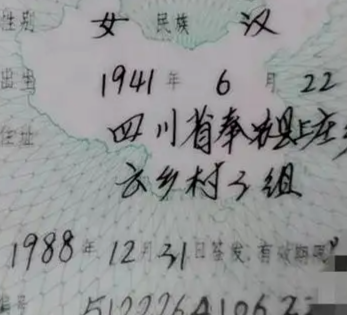 性别 女 民族 汉
出生 1941 年 6 月 22
住址 四川省奉节县上庄乡
云乡村3组
1988年 12月31日签发,有效期限
编号 512226410622